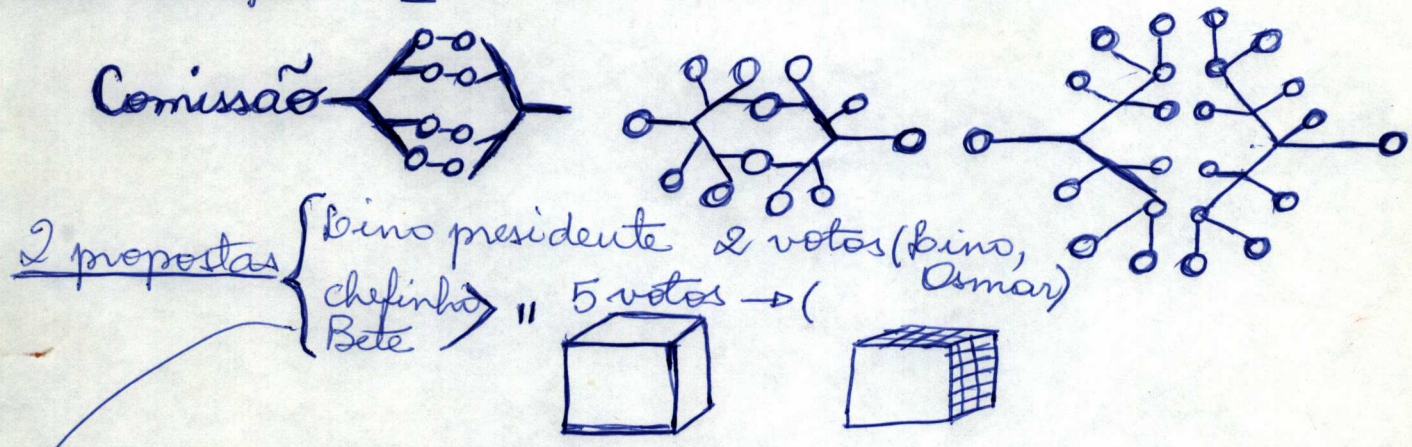 Comissão
2 propostas { Dino presidente 2 votos (Dino, Osmar)
chefinho " 5 votos → (
Bete